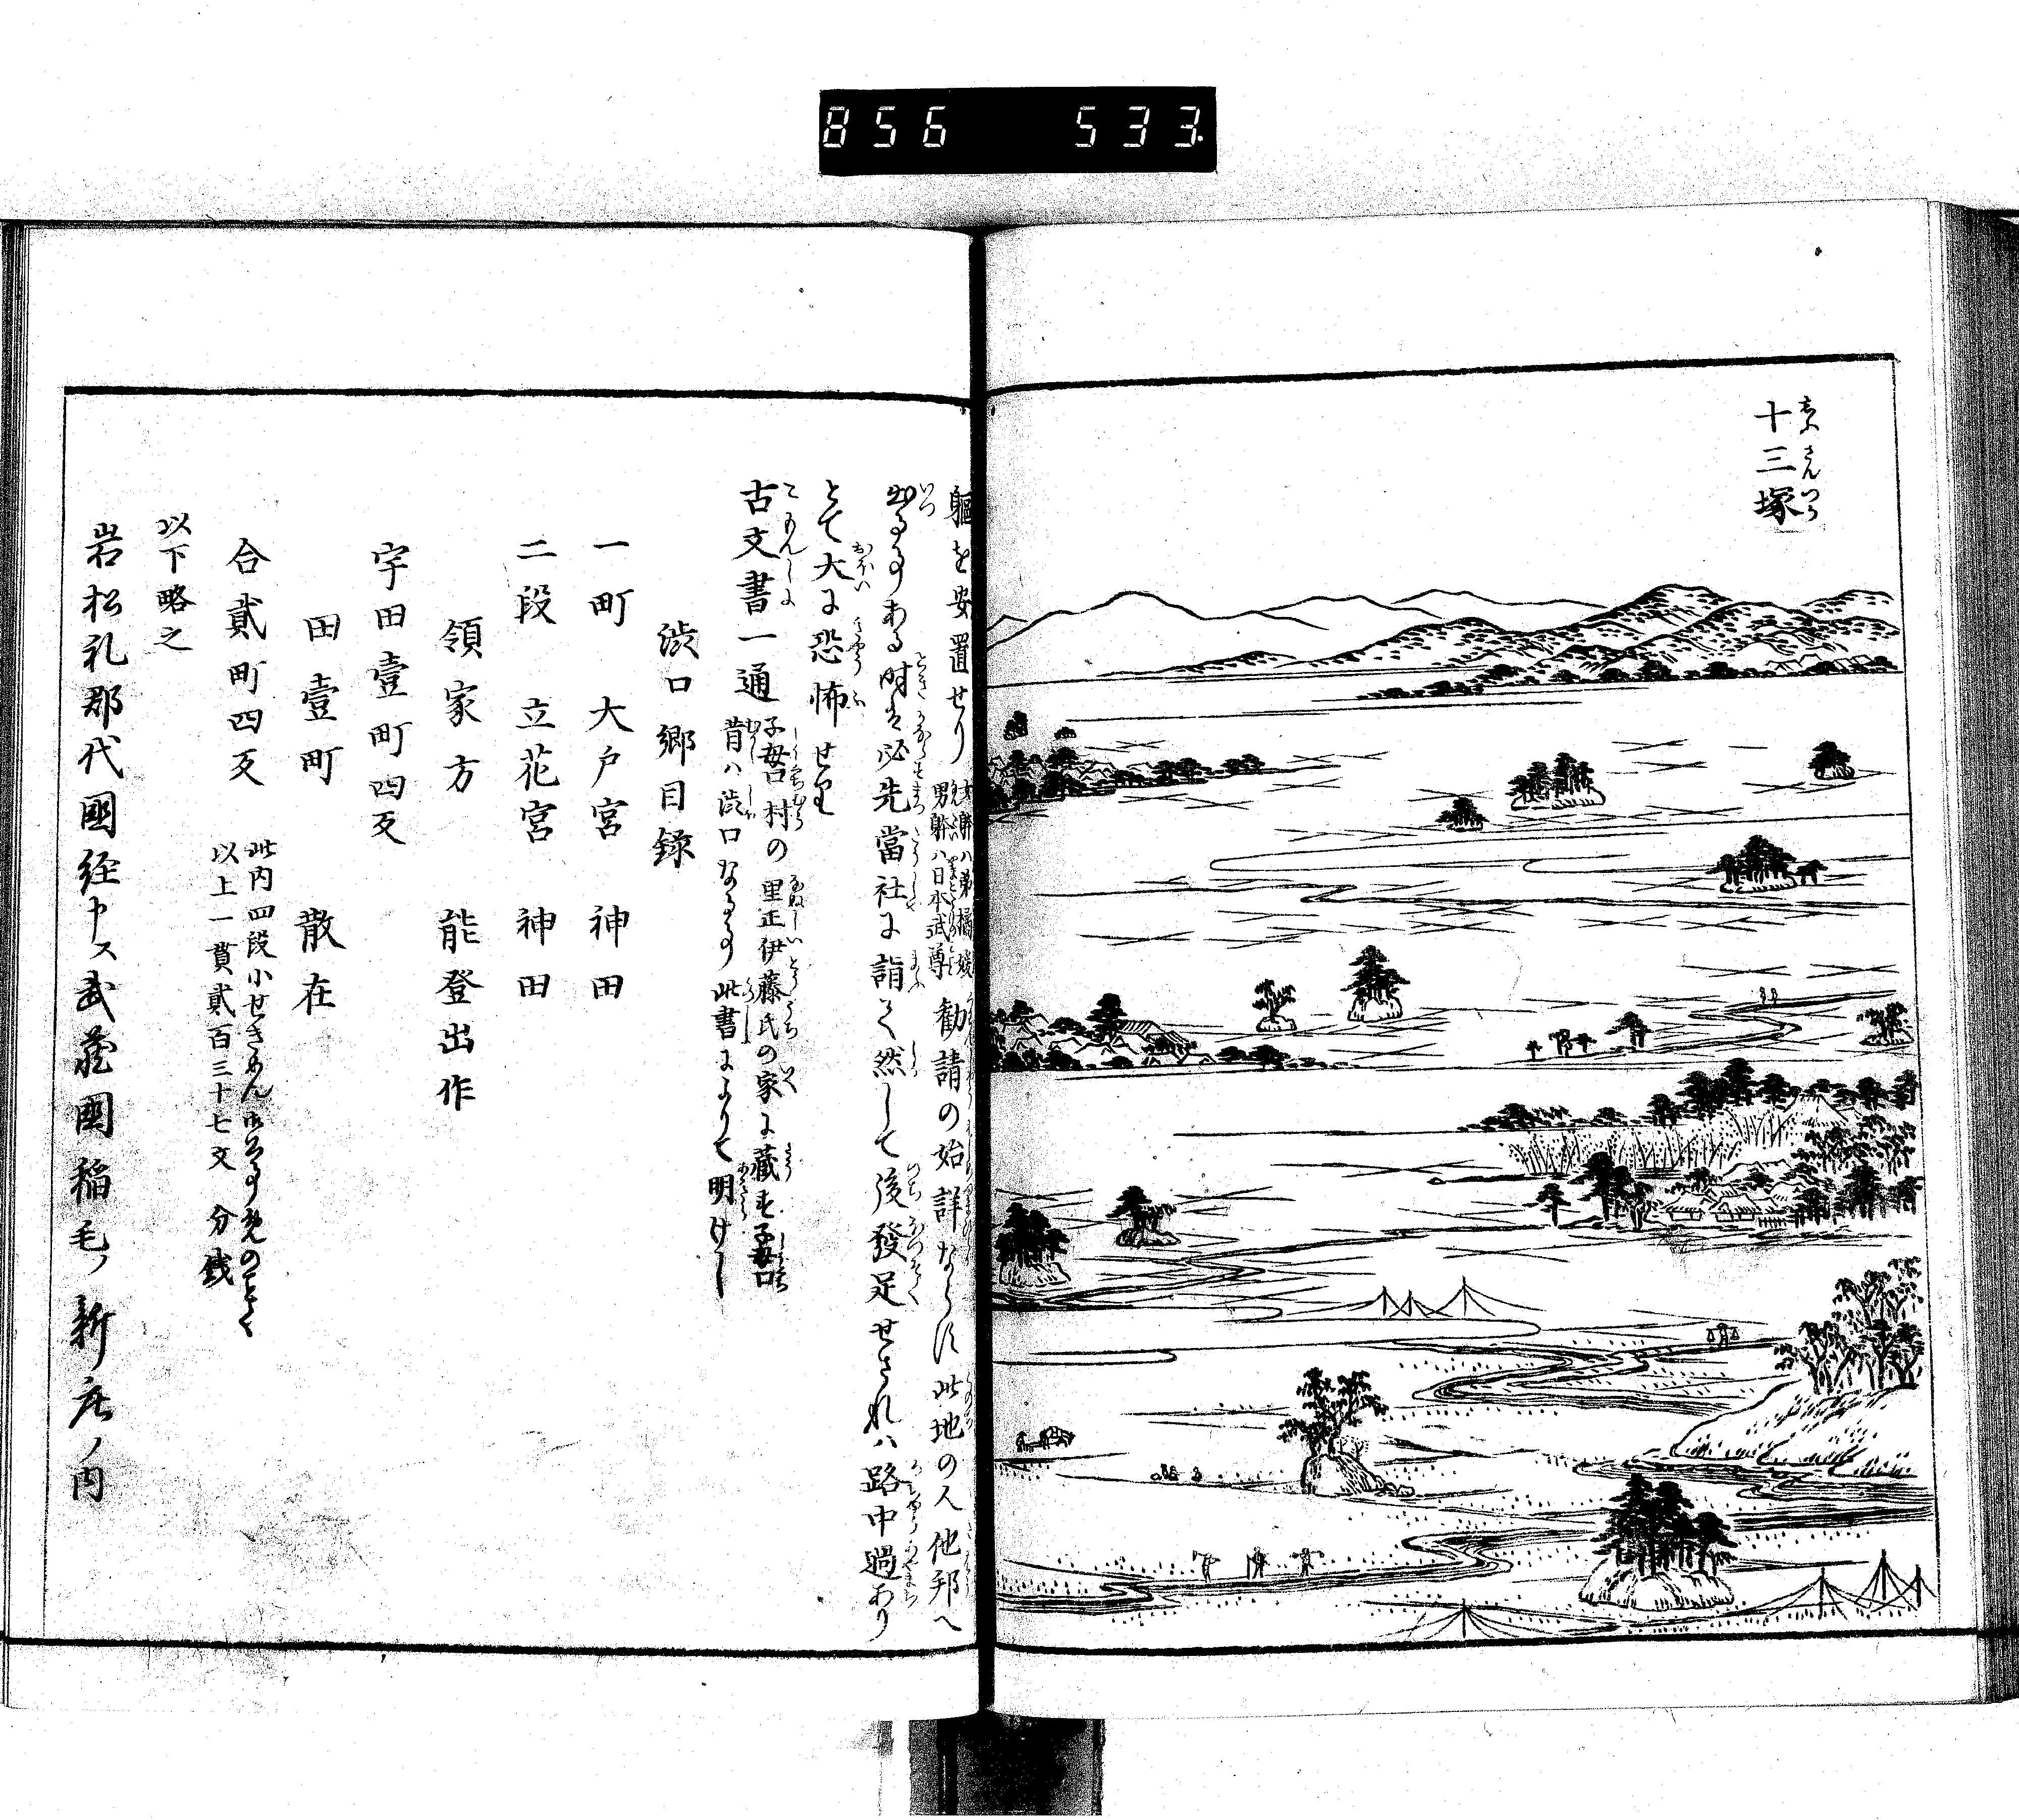 856 533
十三塚
じふさんづか
躯を安置せり 女躰ハ弟橘媛 男躰ハ日本武尊 勧請の始詳ならず此地の人他邦へ
出る事ある時は必先當社に詣で然して後發足せされハ路中過あり
とて大に恐怖せり
古文書一通 子母口村の里正伊藤氏の家に蔵す子母口 昔ハ渋口なる事此書によりて明けし
渋口郷目録
一町 大戸宮 神田
二段 立花宮 神田
領家方 能登出作
宇田壹町四反
田壹町 散在
合貳町四反 此内四段小せきめん
以上一貫貳百三十七文 分銭
以下略之
岩松礼部代國経申ス武蔵國稲毛ノ新庄ノ内